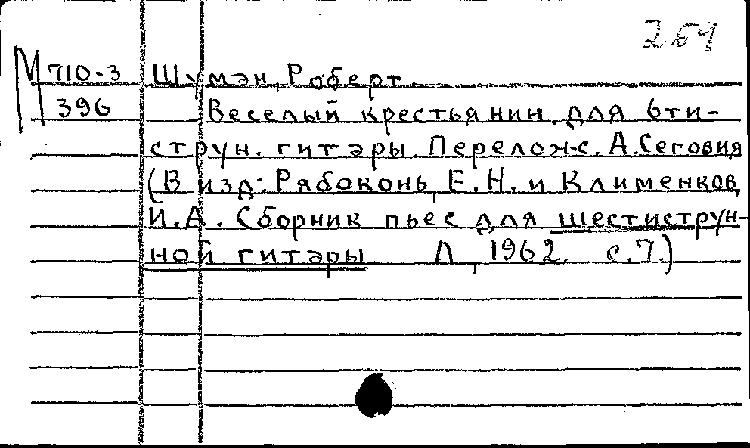 264
М 710-3 Шуман, Роберт.
396 Веселый крестьянин. для 6ти-
струн. гитары. Перелож. с. А. Сеговия
(В изд: Рябоконь, Е. Н. и Клименков,
И. А. Сборник пьес для шестиструн-
ной гитары Л, 1962. с. 7.)